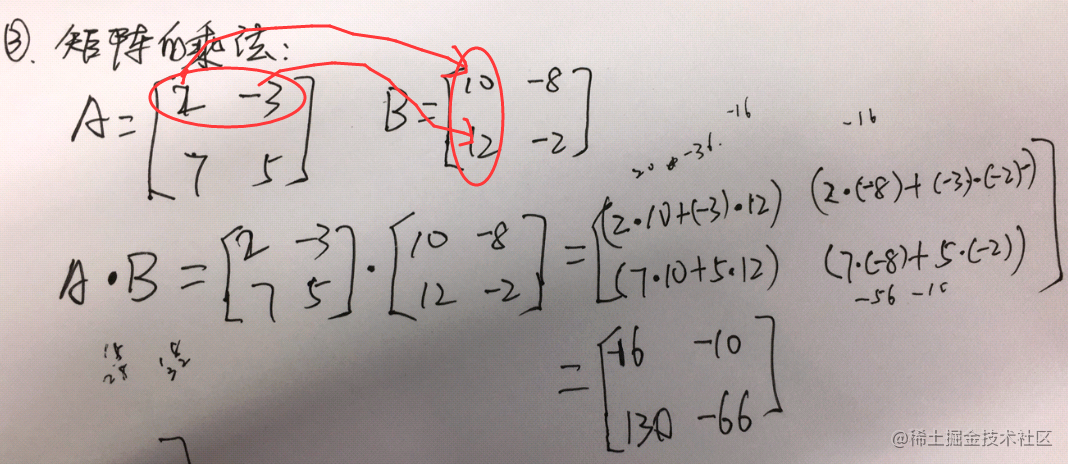 ③. 矩阵的乘法:
A = [2 -3
7 5] B = [10 -8
12 -2]
20 -36 -16 -16
A·B = [2 -3
7 5] · [10 -8
12 -2] = [(2·10+(-3)·12) (2·(-8)+(-3)·(-2))
(7·10+5·12) (7·(-8)+5·(-2))]
-56 -10
= [-16 -10
130 -66]
@稀土掘金技术社区